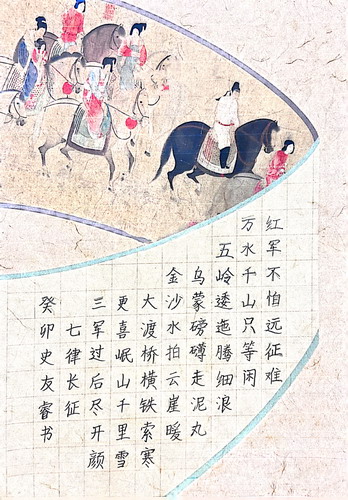 红军不怕远征难
万水千山只等闲
五岭逶迤腾细浪
乌蒙磅礴走泥丸
金沙水拍云崖暖
大渡桥横铁索寒
更喜岷山千里雪
三军过后尽开颜
七律长征
癸卯史友睿书